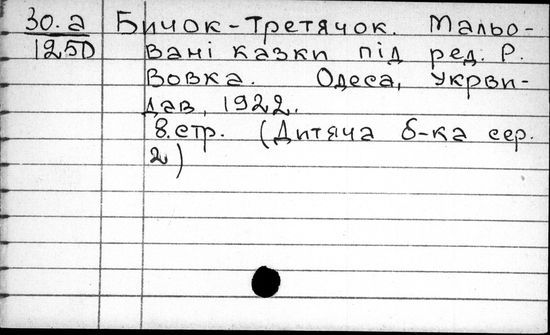 30.а Бичок-Третячок. Мальо-
1250 вані казки під ред. Р.
Вовка. Одеса, Укрви-
дав, 1922.
8.стр. (Дитяча б-ка сер.
2)